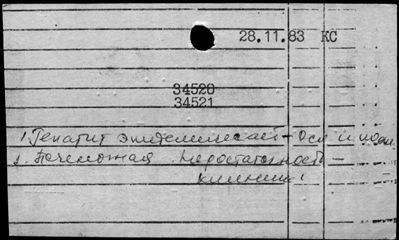 28.11.83 КС
34520
34521
1. Гепатит эпидемический -
2. Печеночная недостаточность -
клиника